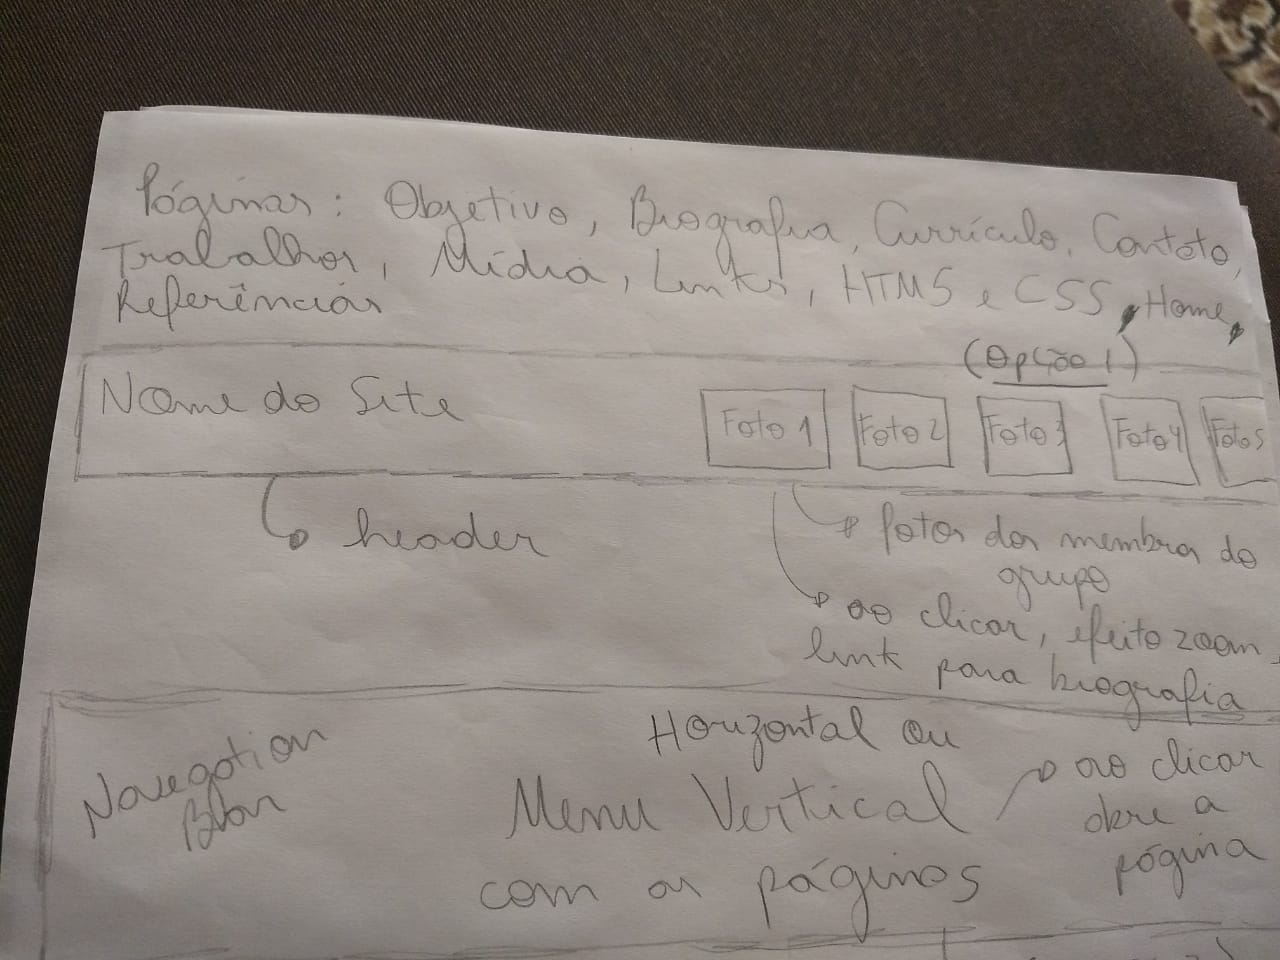 Páginas: Objetivo, Biografia, Currículo, Contato,
Trabalhos, Mídia, Links, HTM5 e CSS, Home,
Referências
(Opção 1)
Nome do Site
Foto 1 Foto 2 Foto 3 Foto 4 Foto 5
header
fotos dos membros do
grupo
ao clicar, efeito zoom,
link para biografia
Navegation
Bar
Horizontal ou
Menu Vertical
com as páginas
ao clicar
abre a
página